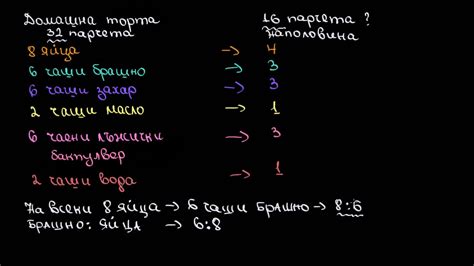 Домашна торта 16 парчета ?
32 парчета наполовина
8 яйца → 4
6 чаши брашно → 3
6 чаши захар → 3
2 чаши масло → 1
6 чаени лъжички → 3
бакпулвер
2 чаши вода → 1
На всеки 8 яйца → 6 чаши брашно → 8:6
брашно: яйца → 6:8